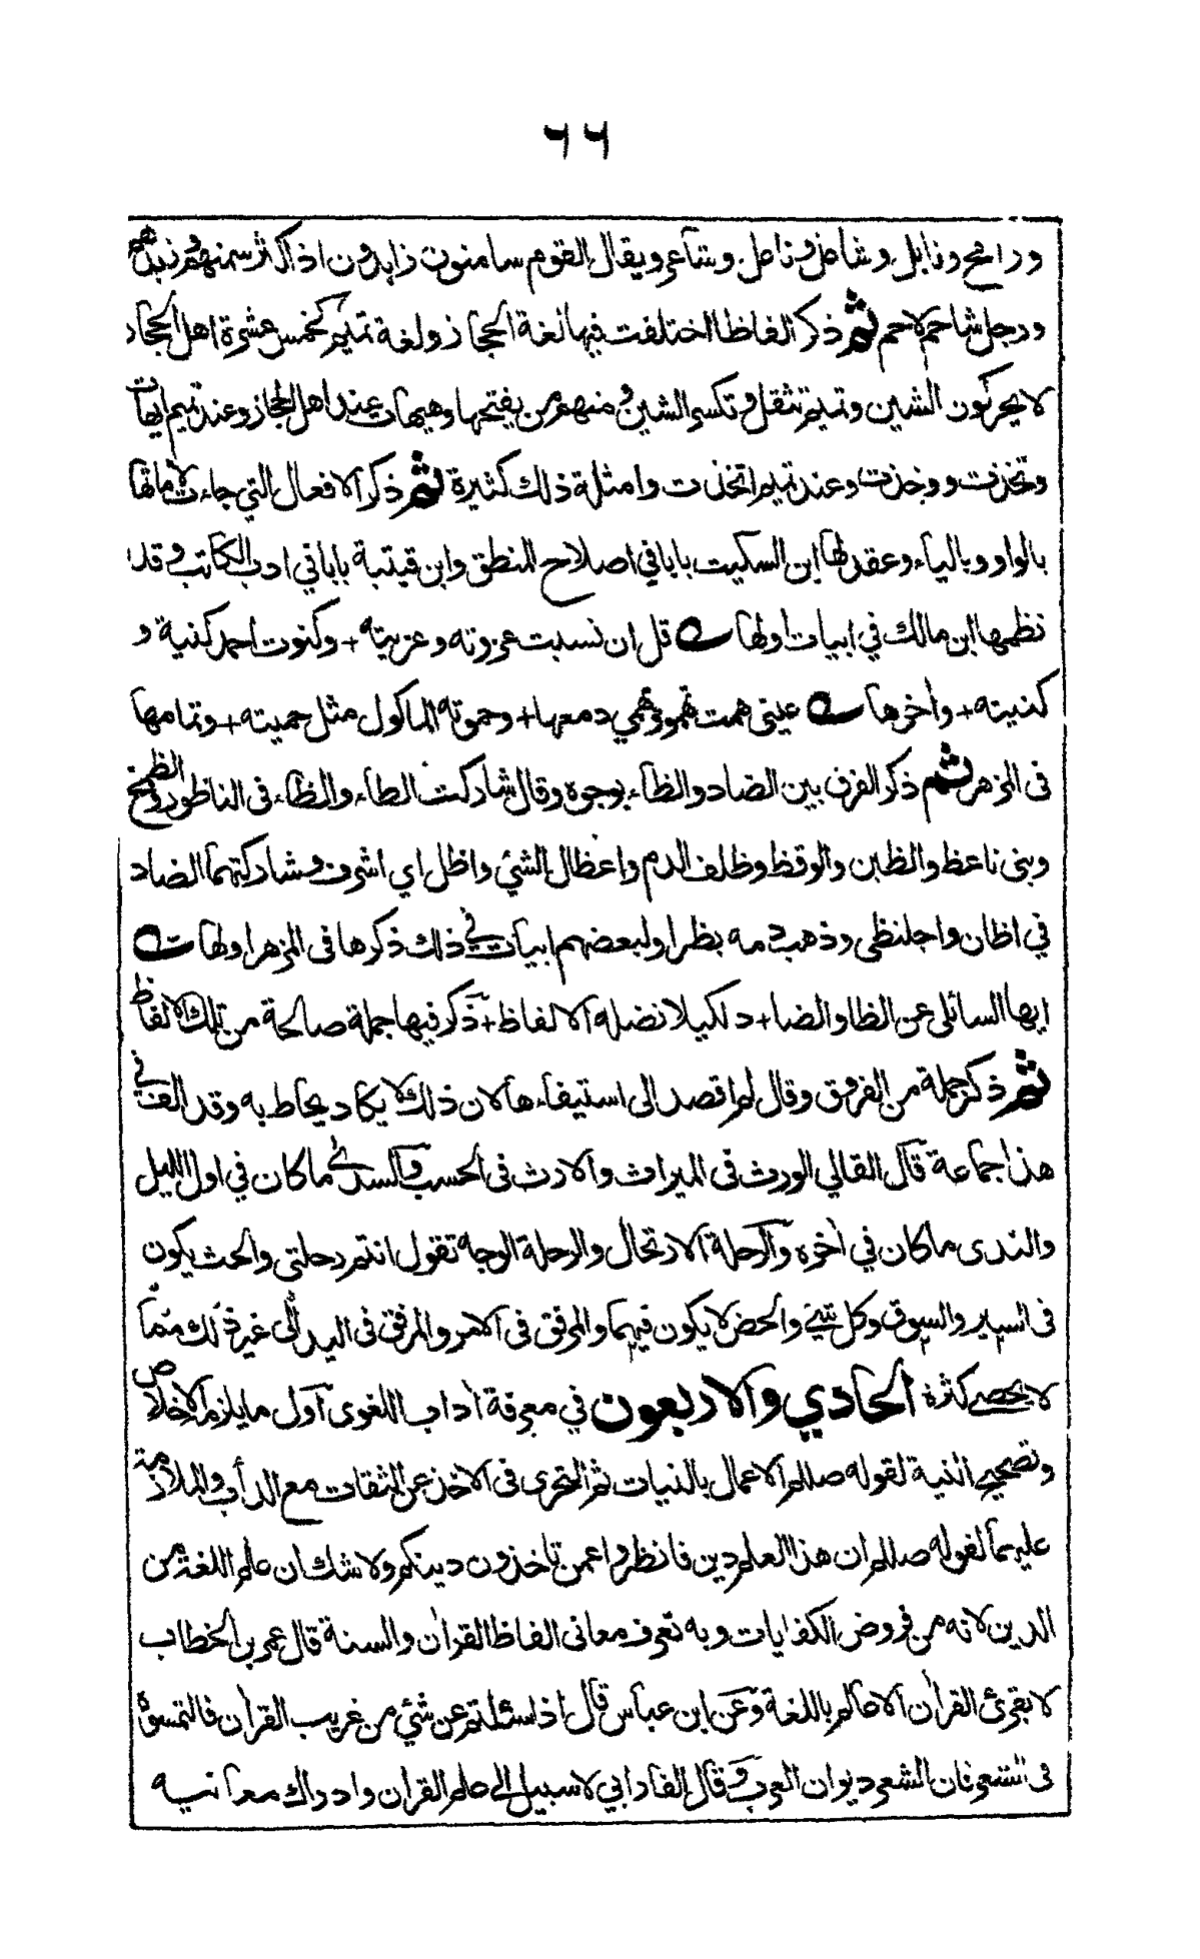 ٦٦
ورامح ونابل وشاخل وناصل وشاعر ويقال القوم سامنون زابدون اذا كثر سمنهم وزبدهم
ورجل شاحم لاحم ثم ذكر الفاظا اختلفت فيها لغة الحجاز ولغة تميم كخمس عشرة اهل الحجاز
لا يحركون الشين وتميم تثقل وتكسر الشين ومنهم من يفتحها وهيهات عند اهل الحجاز وعند تميم ايهات
وتخذت ووخذت وعند تميم اتخذت وامثلة ذلك كثيرة ثم ذكر الافعال التي جاءت لاماتها
بالواو وبالياء وعقد لها ابن السكيت بابا في اصلاح المنطق وابن قيتبة بابا في ادب الكاتب وقد
نظمها ابن مالك في ابيات اولها قل ان نسبت عزوته وعزيته + وكنوت احمد كنية و
كنيته + وأخرها عيني همت تهمو وتهمي دمعها + وحموته الماكول مثل حميته + وتمامها
فى المزهر ثم ذكر الفرق بين الضاد والظاء بوجوه وقال شاركت الطاء والظاء فى الناظور والظمخ
وبنى ناعظ والظبن والوقظ وظلف الدم واعظال الشئ واظل اي اشرف ومشاركتهما الضاد
في اظان واجلنظى وذهب دمه بظرا ولبعضهم ابيات في ذلك ذكرها فى المزهر اولها
ايها السائلى عن الظا والضا + د لكيلا نضله الالفاظ + ذكر فيها جملة صالحة من تلك الالفاظ
ثم ذكر جملة من الفروق وقال لم اقصد الى استيفاءها لان ذلك لا يكاد يحاط به وقد الف في
هذا جماعة قال القالي الورث فى الميراث والارث فى الحسب والسدى ما كان في اول الليل
والندى ما كان في أخره والرحلة الارتحال والرحلة الوجه تقول انتم رحلتى والحث يكون
فى السير والسوق وكل شئ والحض لا يكون فيهما والمرفق فى الامر والمرفق فى اليد الى غير ذلك مما
لا يحصى كثرة الحادي والاربعون في معرفة أداب اللغوى اول ما يلزمه الاخلاص
وتصحيح النية لقوله صللم الاعمال بالنيات ثم التحرى فى الاخذ عن الثقات مع الدأب والملازمة
عليهما لقوله صللم ان هذا العلم دين فانظروا عمن تاخذون دينكم ولا شك ان علم اللغة من
الدين لانه من فروض الكفايات وبه تعرف معانى الفاظ القرأن والسنة قال عمر بن الخطاب
لا يقرئ القرأن الا عالم باللغة وعن ابن عباس قال اذا سئلتم عن شئ من غريب القرأن فالتمسوه
فى الشعر فان الشعر ديوان العرب وقال الفارابي لا سبيل الى علم القرأن وادراك معانيه